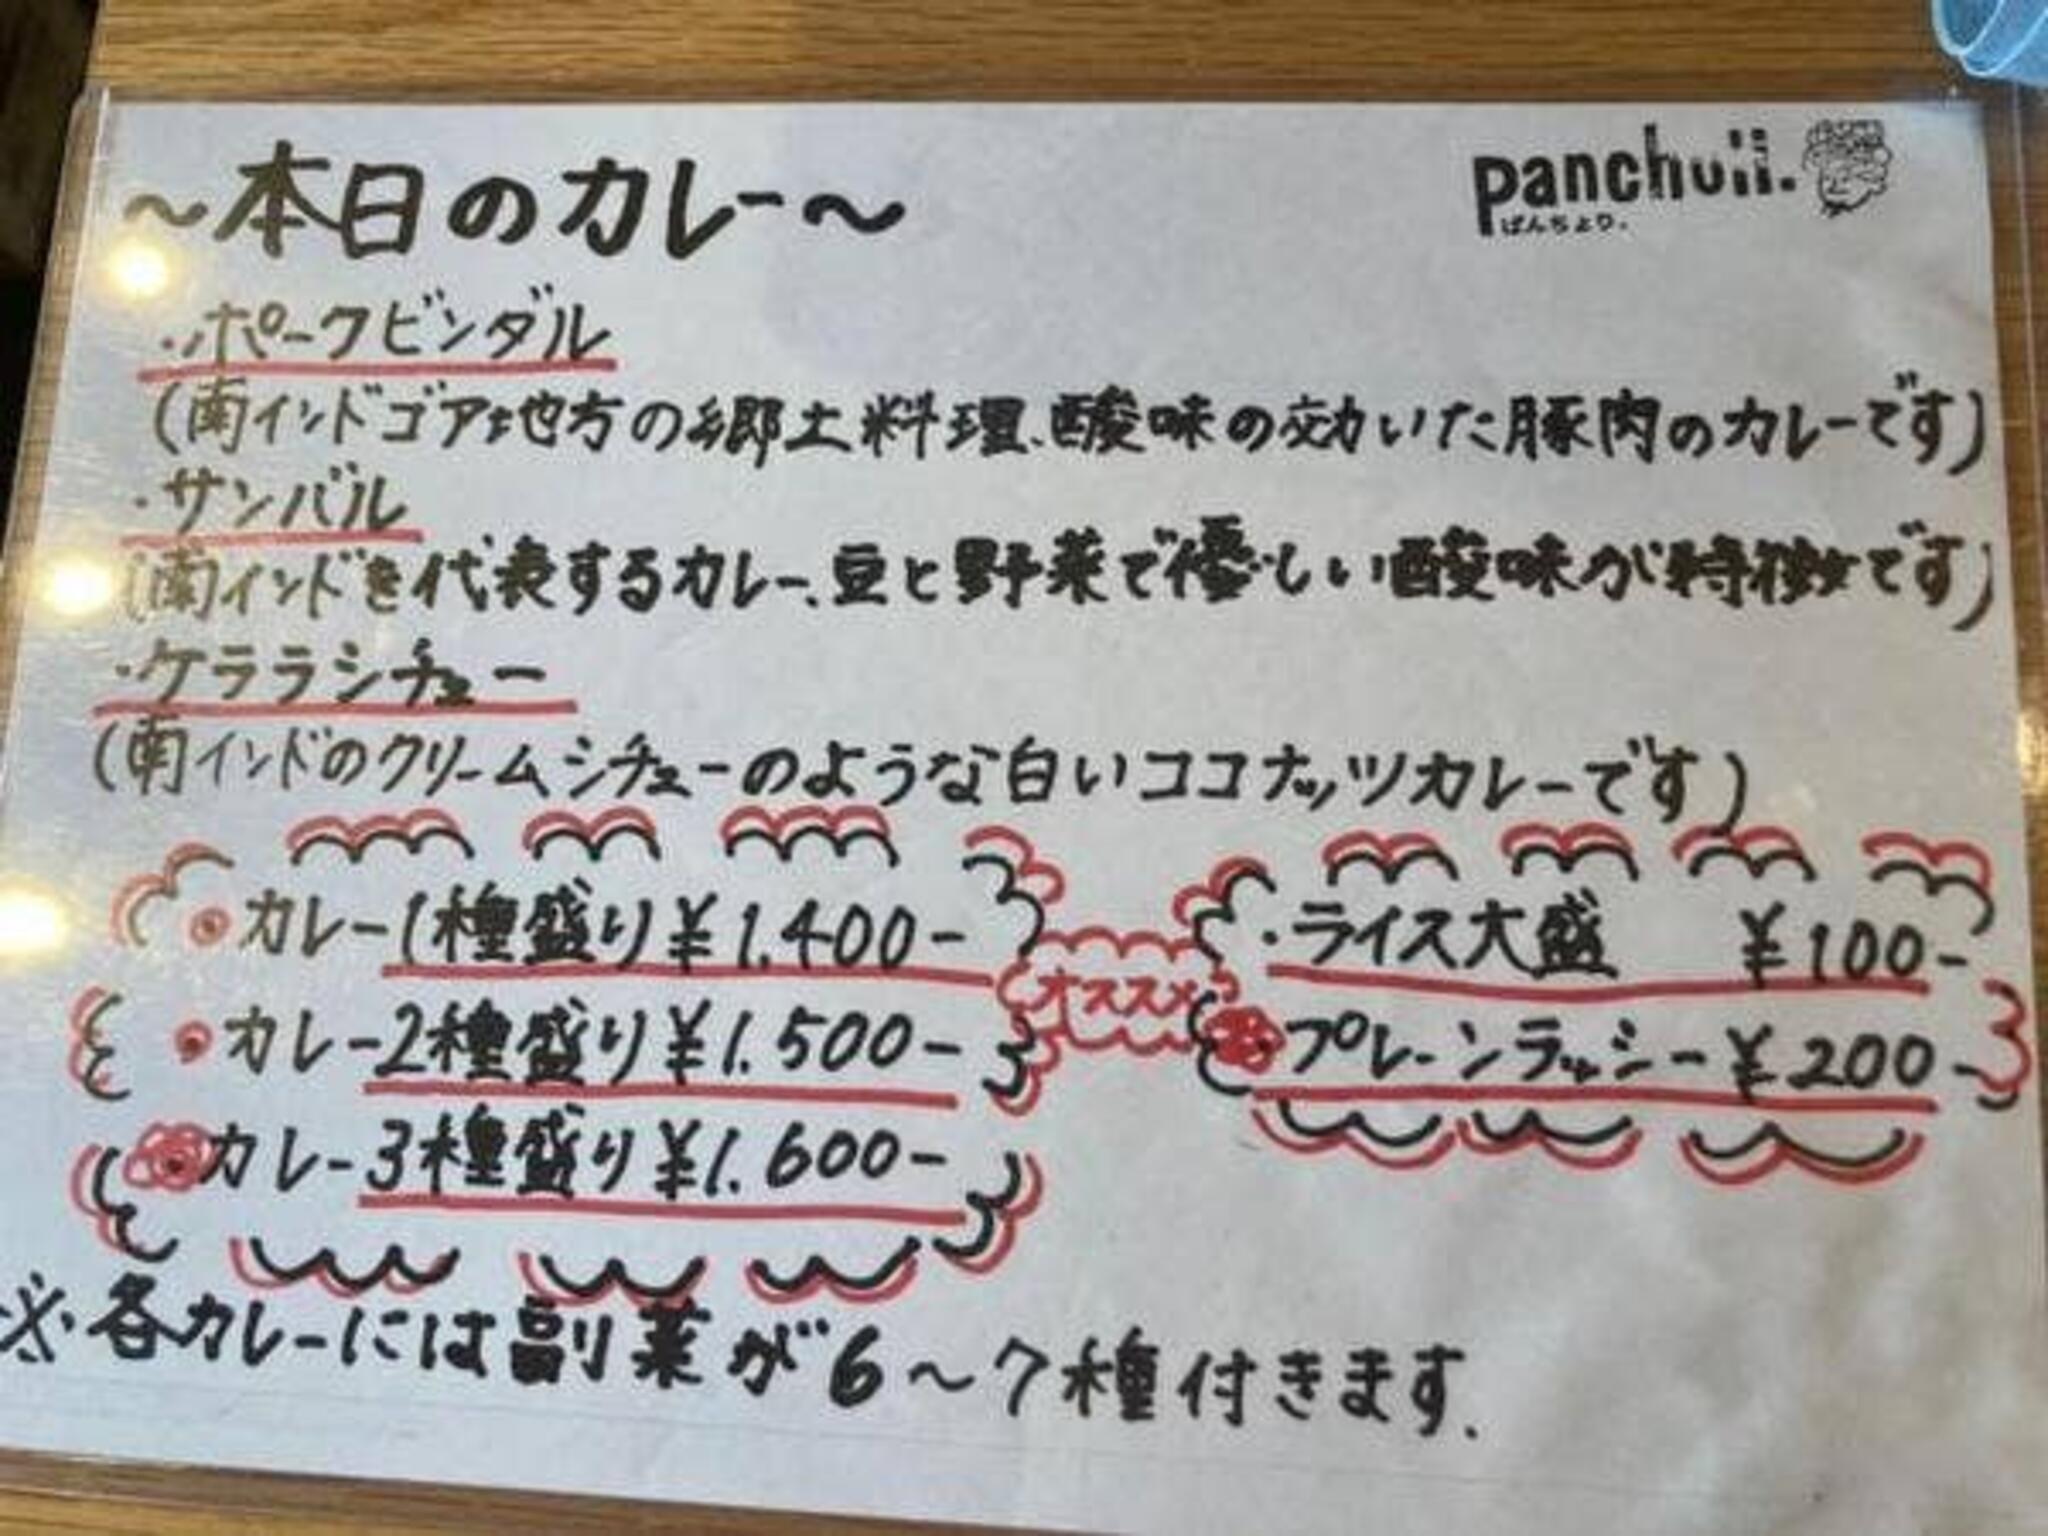 ～本日のカレー～
panchuii.
ぱんちょり.
・ポークビンダル
(南インドゴア地方の郷土料理、酸味の効いた豚肉のカレーです)
・サンバル
(南インドを代表するカレー、豆と野菜で優しい酸味が特徴です)
・ケララシチュー
(南インドのクリームシチューのような白いココナッツカレーです)
カレー1種盛り ¥1.400-
カレー2種盛り ¥1.500-
カレー3種盛り ¥1.600-
オススメ
・ライス大盛 ¥100-
プレーンラッシー ¥200-
※各カレーには副菜が6～7種付きます.